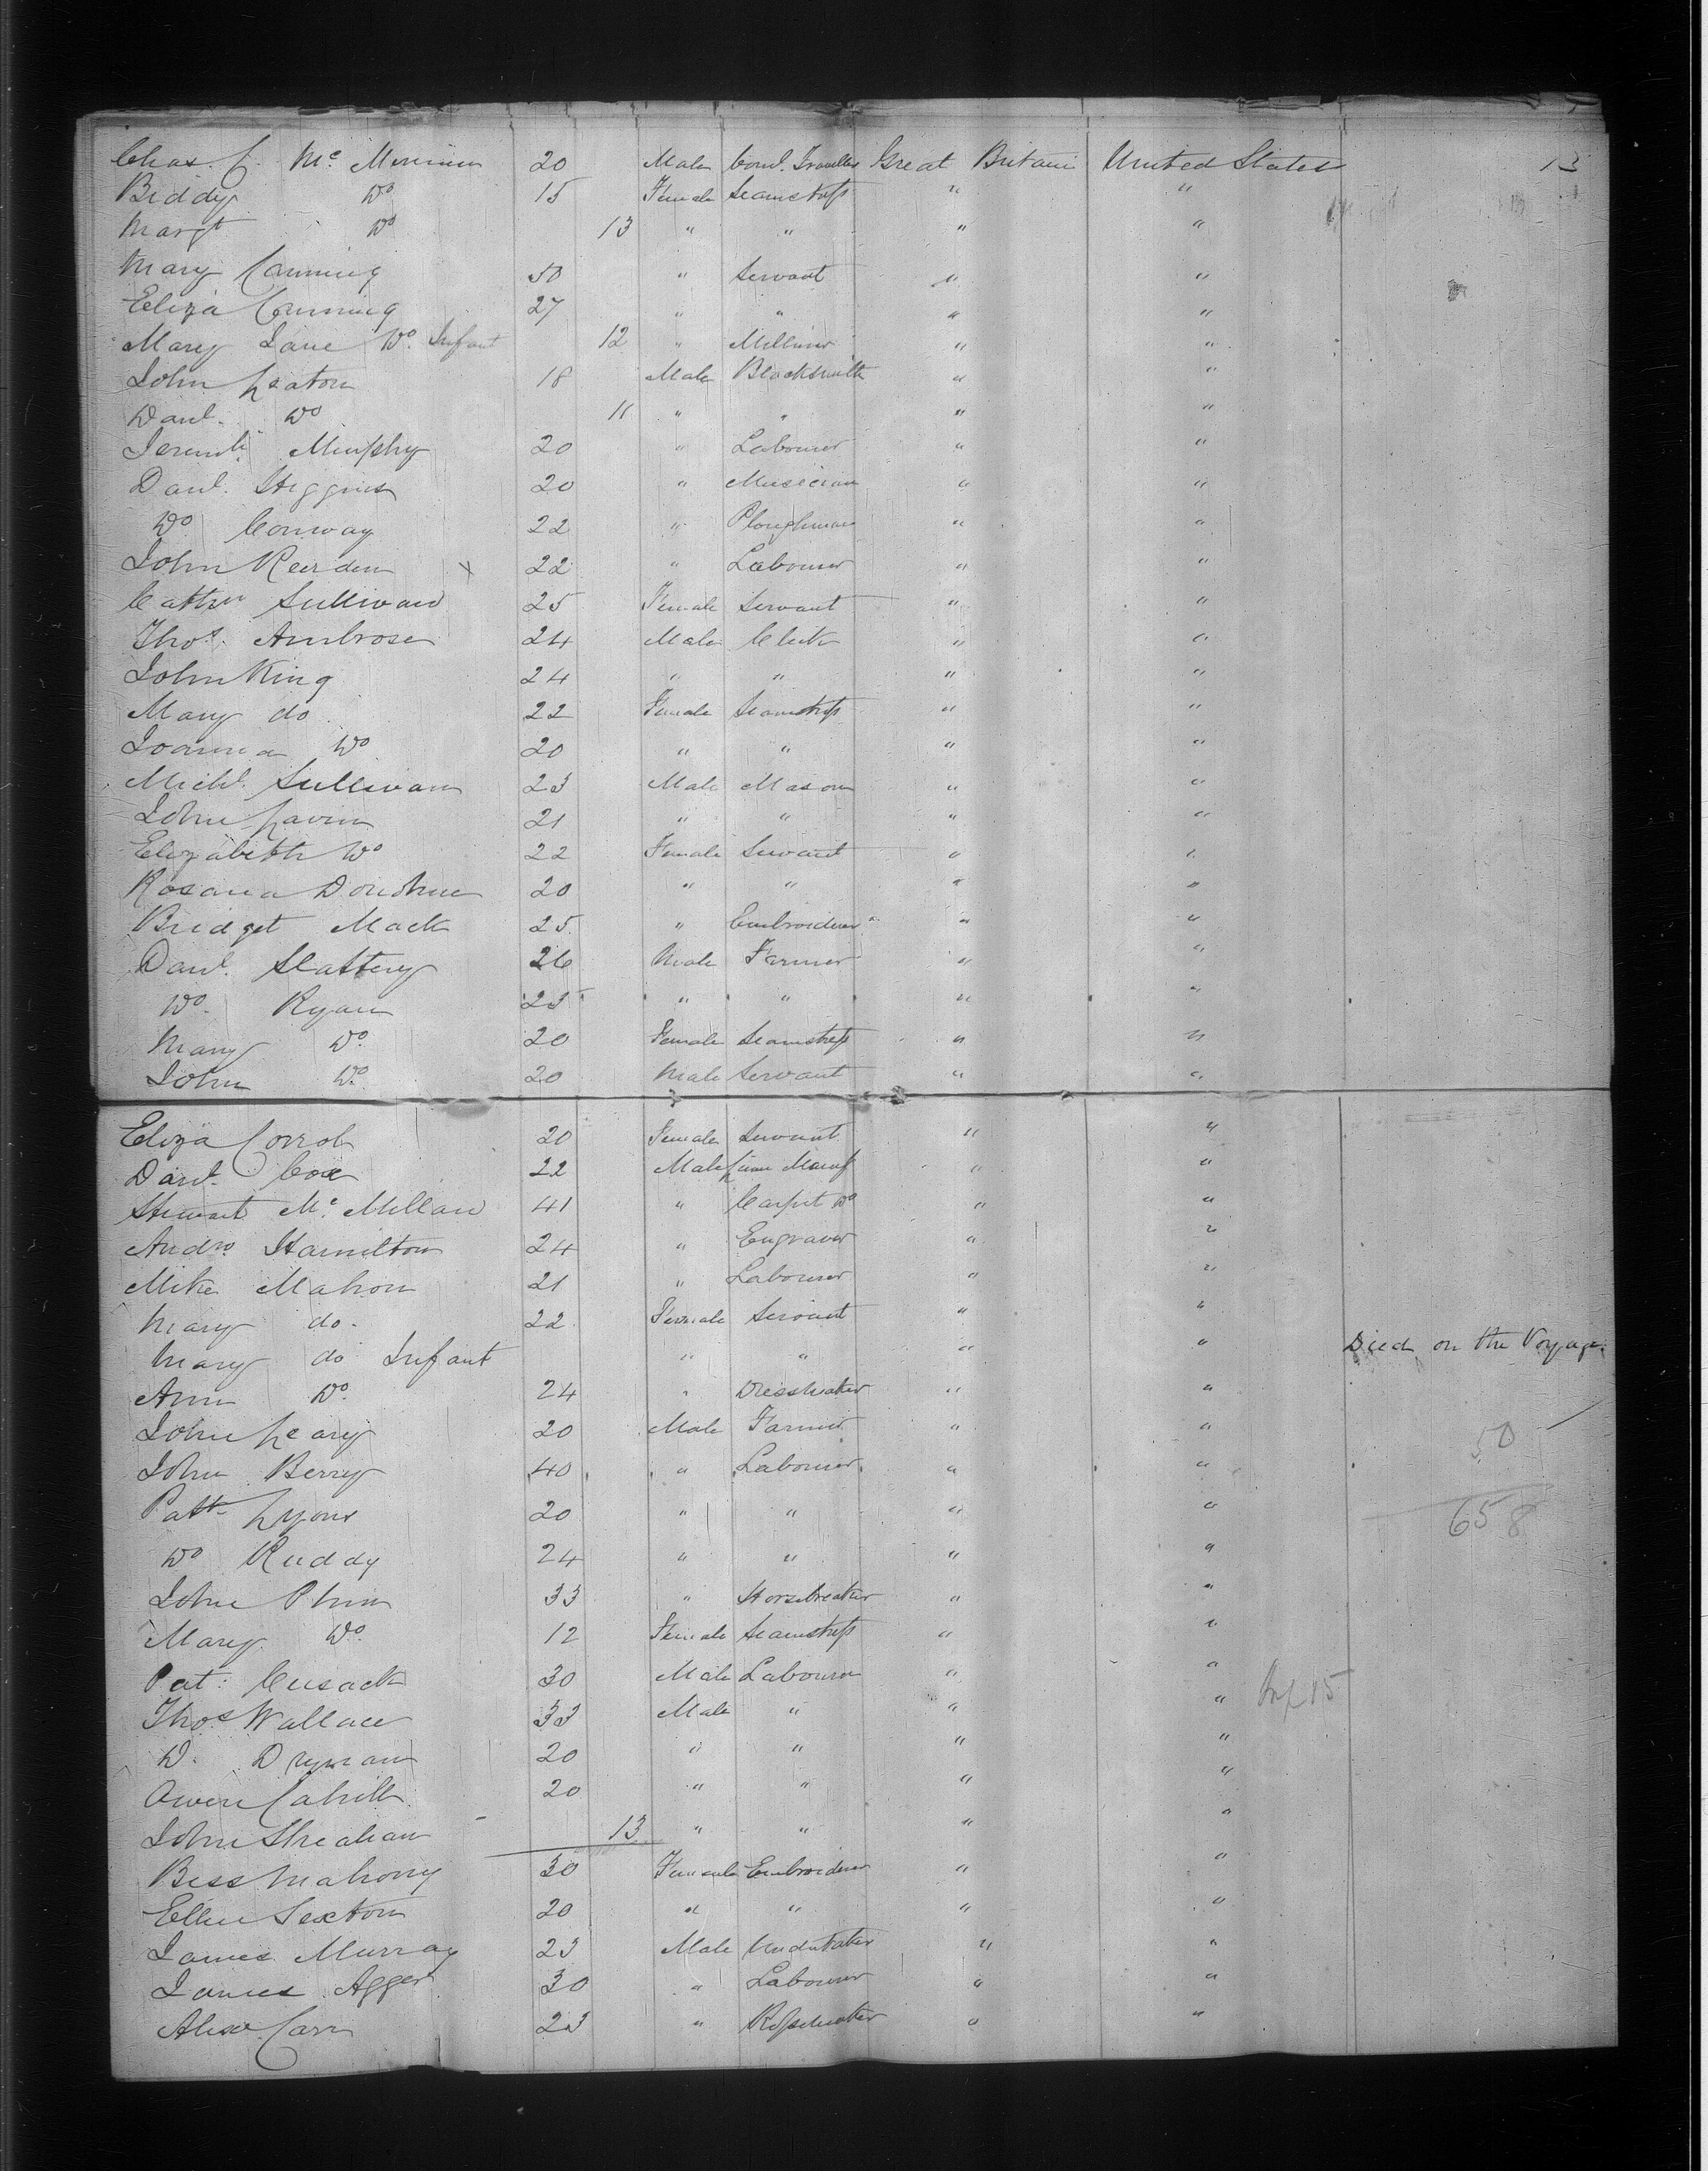 Chas. J. Mc Menimen 20 Male Coml. Traveller Great Britain United States 13
Biddy Do 15 Female Seamstress " "
Margt Do 13 " " " "
Mary Canning 50 " Servant " "
Eliza Canning 27 " " " "
Mary Jane Do. Infant 12 " Milliner " "
John Leaton 18 Male Blacksmith " "
Danl. Do 11 " " " "
Jeremh. Murphy 20 " Labourer " "
Danl. Higgins 20 " Musician " "
Do Conway 22 " Ploughman " "
John Reerden x 22 " Labourer " "
Cathn Sullivan 25 Female Servant " "
Thos. Ambrose 24 Male Clerk " "
John King 24 " " " "
Mary do 22 Female Seamstress " "
Joanna Do 20 " " " "
Michl. Sullivan 23 Male Mason " "
John Lavin 21 " " " "
Elizabeth Do 22 Female Servant " "
Rosana Donohue 20 " " " "
Bridget Mack 25 " Embroiderer " "
Danl. Slattery 26 Male Farmer " "
Do. Ryan 25 " " " "
Mary Do. 20 Female Seamstress " "
John Do. 20 Male Servant " "
Eliza Corrol 20 Female Servant " "
Danl. Cox 22 Male Linen Manuf " "
Stewart Mc Millan 41 " Carpet Do " "
Andw. Hamilton 24 " Engraver " "
Mike Mahon 21 " Labourer " "
Mary do. 22 Female Servant " "
Mary do Infant " " " " Died on the Voyage.
Ann Do. 24 " Dressmaker " "
John Leary 20 Male Farmer " " 50
John Berry 40 " Labourer " "
Patk Lyons 20 " " " " 658
Do Ruddy 24 " " " "
John Phin 33 " Horsebreaker " "
Mary Do. 12 Female Seamstress " "
Pat: Cusack 30 Male Labourer " "
Thos Wallace 33 Male " " " Inf 15
D. Dryman 20 " " " "
Owen Cahill 20 " " " "
John Sheahan 13 " " " "
Bess Mahony 30 Female Embroiderer " "
Ellen Sexton 20 " " " "
James Murray 23 Male Undertaker " "
James Agger 30 " Labourer " "
Alexr Carr 23 " Ropemaker " "